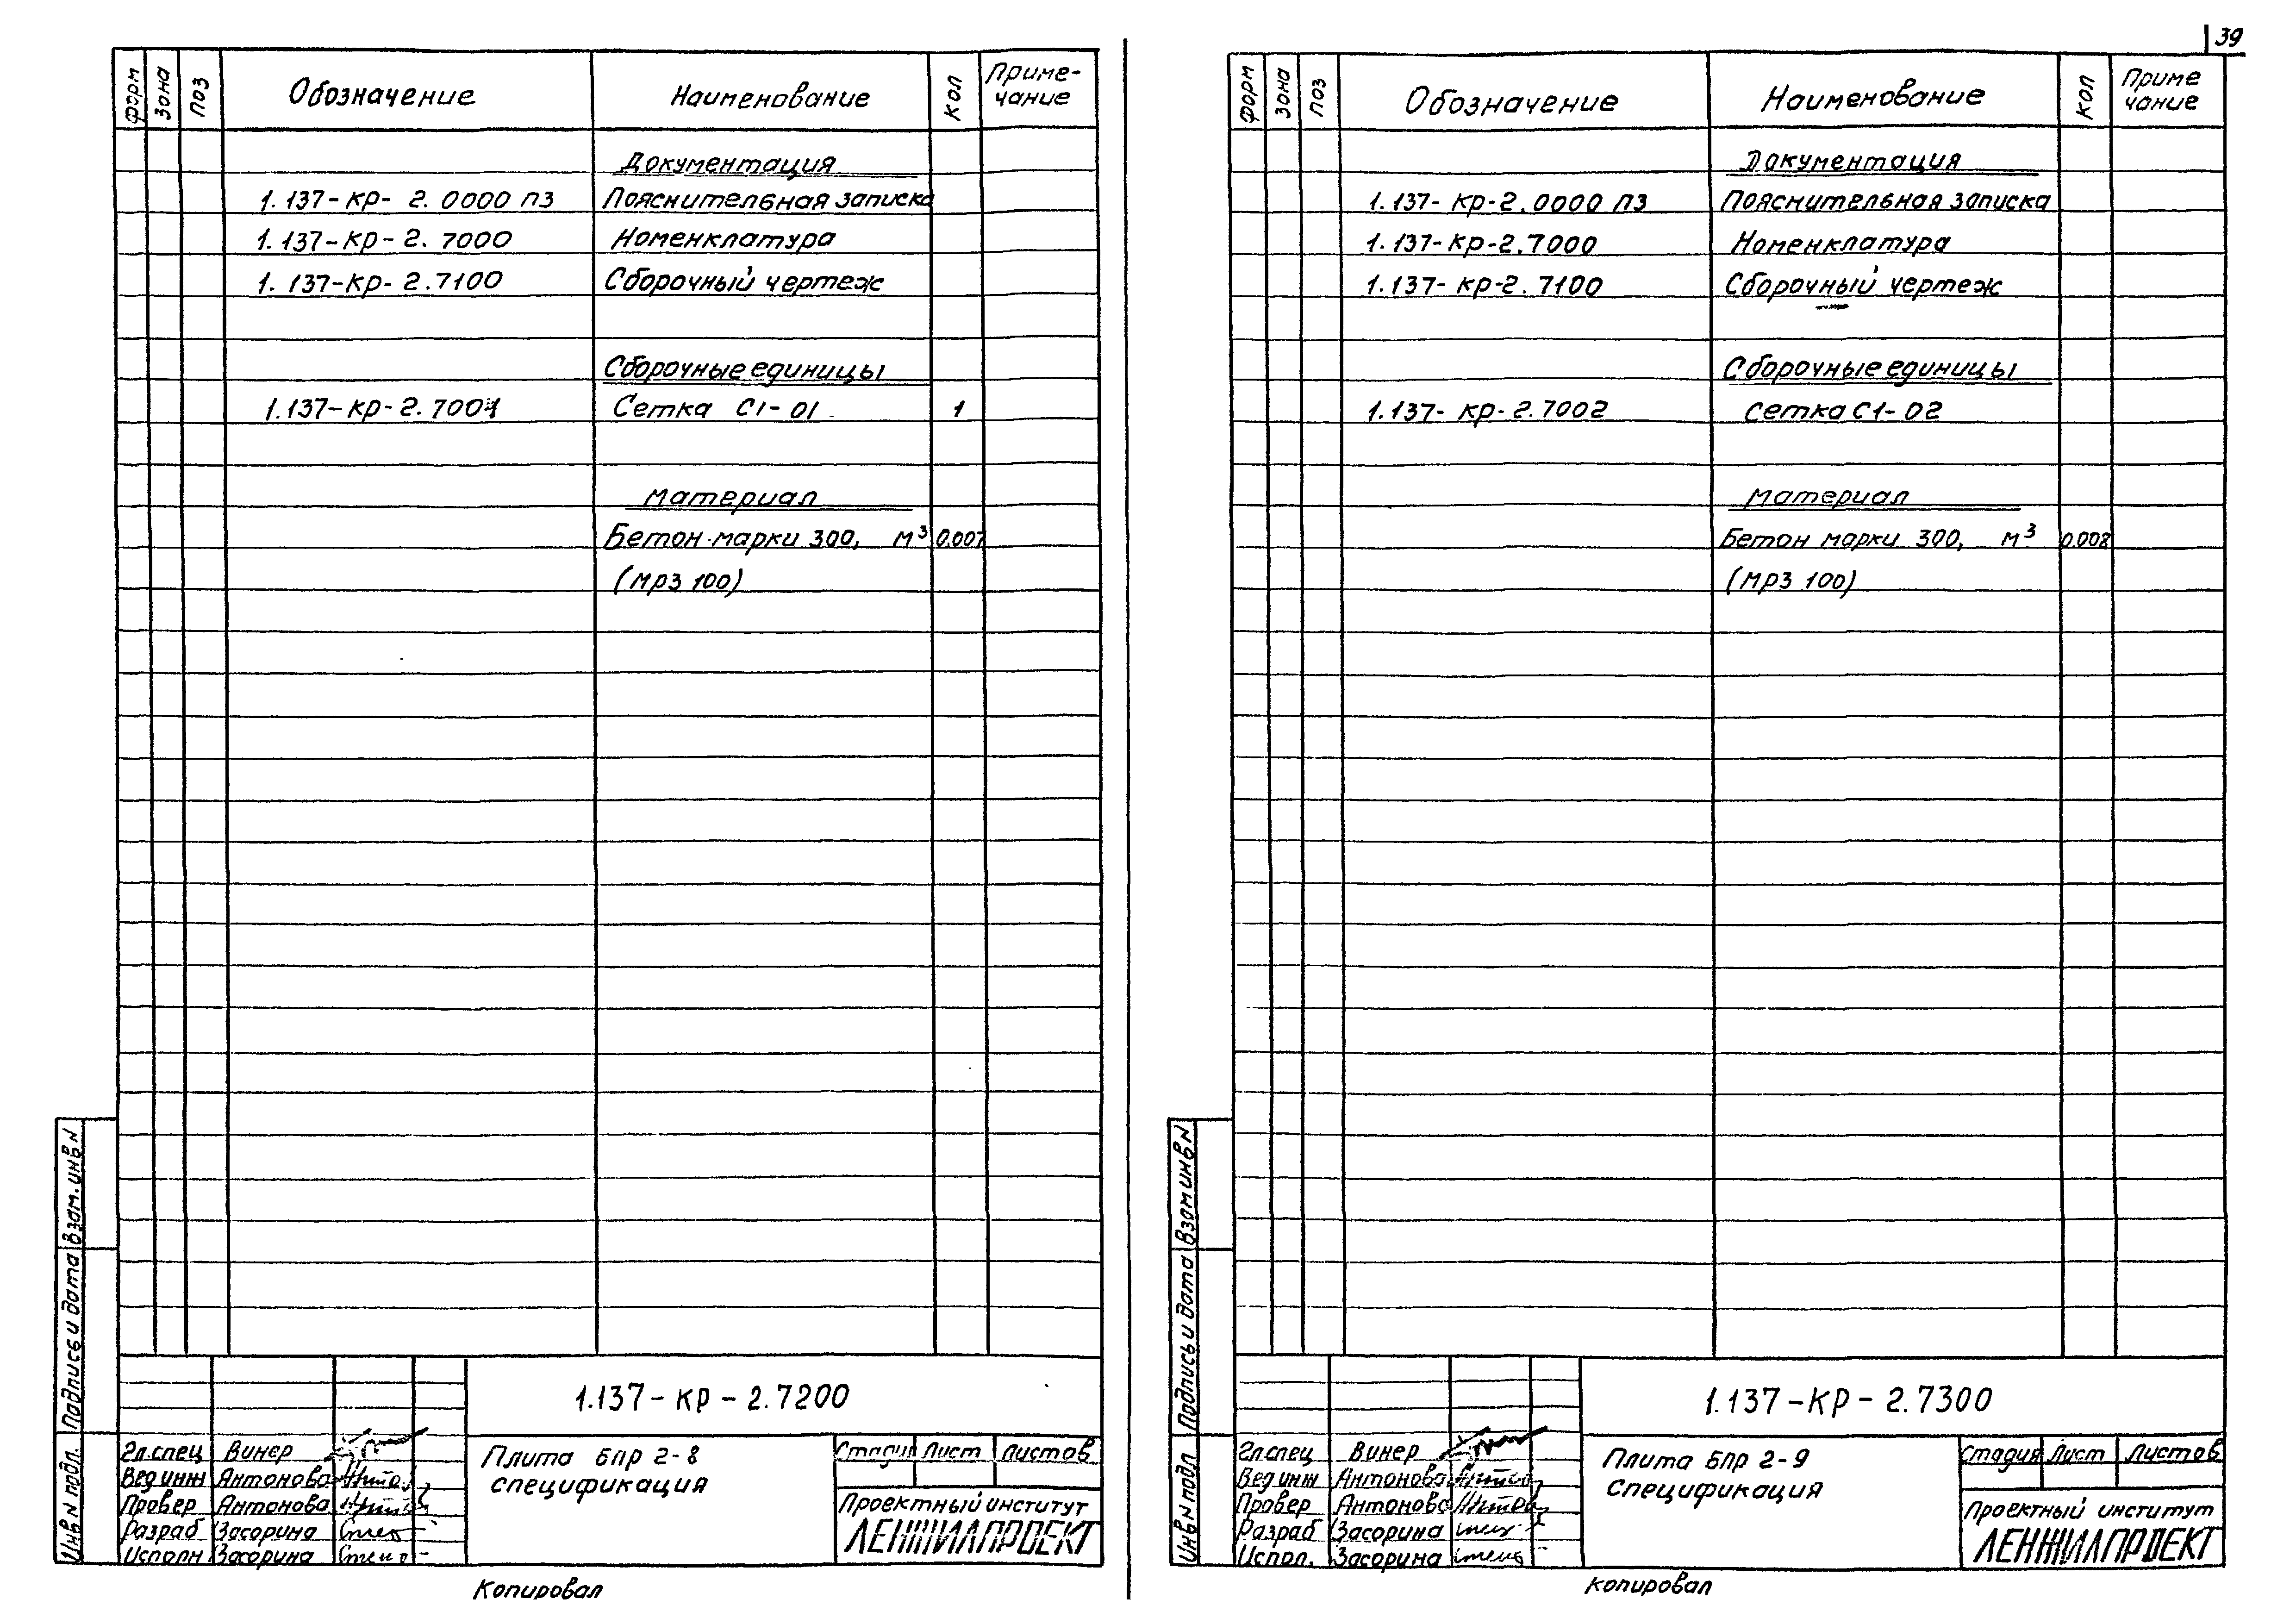 39
форм зона поз Обозначение Наименование кол Приме-
чание
Документация
1.137-КР-2.0000 ПЗ Пояснительная записка
1.137-КР-2.7000 Номенклатура
1.137-КР-2.7100 Сборочный чертеж
Сборочные единицы
1.137-КР-2.7001 Сетка С1-01 1
Материал
Бетон марки 300, м³ 0.007
(МРЗ 100)
Инв N подл. Подпись и дата Взам. инв N
1.137-КР-2.7200
Гл.спец Винер
Вед инж Антонова
Провер Антонова
Разраб Засорина
Исполн Засорина
Плита БПР 2-8
спецификация
Стадия Лист Листов
Проектный институт
ЛЕНЖИЛПРОЕКТ
Копировал
форм зона поз Обозначение Наименование кол Приме
чание
Документация
1.137-КР-2.0000 ПЗ Пояснительная записка
1.137-КР-2.7000 Номенклатура
1.137-КР-2.7100 Сборочный чертеж
Сборочные единицы
1.137-КР-2.7002 Сетка С1-02
Материал
Бетон марки 300, м³ 0.008
(МРЗ 100)
Инв N подл Подпись и дата Взам инв N
1.137-КР-2.7300
Гл.спец Винер
Вед инж Антонова
Провер Антонова
Разраб Засорина
Испол. Засорина
Плита БПР 2-9
Спецификация
Стадия Лист Листов
Проектный институт
ЛЕНЖИЛПРОЕКТ
Копировал